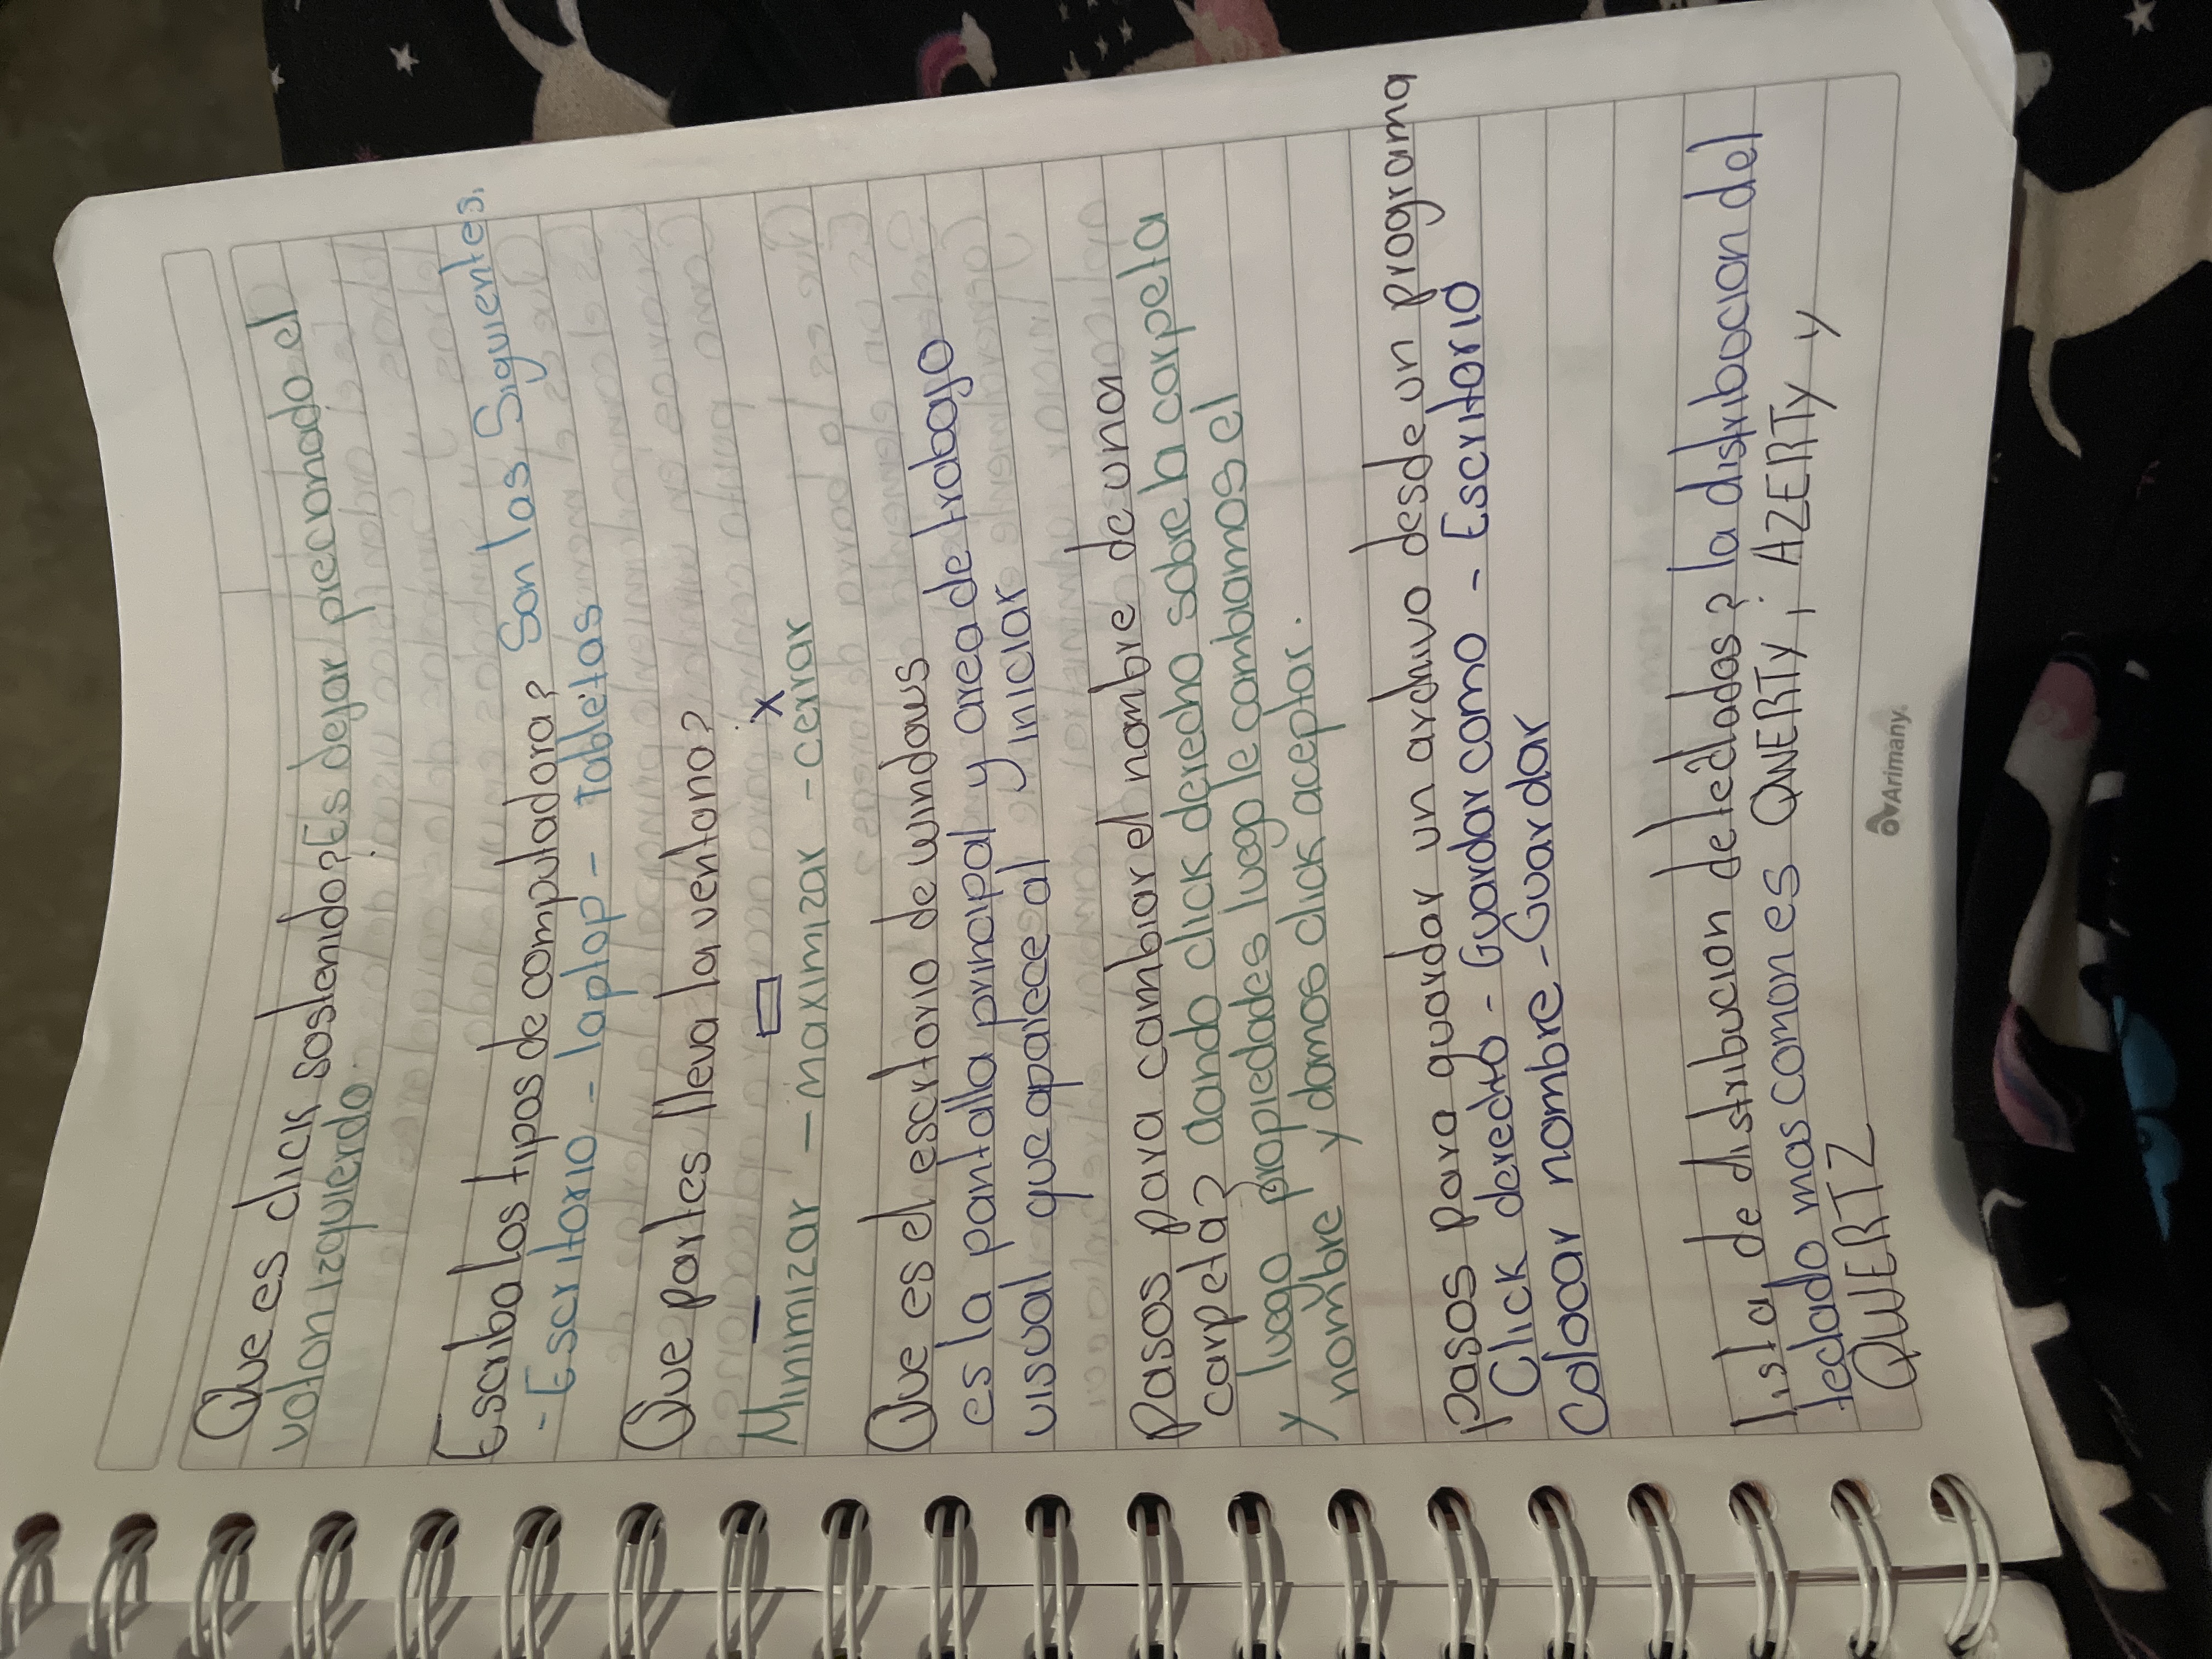 Que es click sostenido? Es dejar precionado el
voton izquierdo.
Escriba los tipos de computadora? Son las Siguientes.
- Escritorio - laptop - Tabletas
Que partes lleva la ventana?
— □ X
Minimizar - maximizar - cerrar
Que es el escritorio de windows
es la pantalla principal y area de trabajo
visual que aparece al iniciar
Pasos para cambiar el nombre de una
carpeta? dando click derecho sobre la carpeta
y luego propiedades luego le cambiamos el
nombre y damos click aceptar.
Pasos para guardar un archivo desde un programa
Click derecho - Guardar como - Escritorio
Colocar nombre - Guardar
lista de distribucion de teclados? la distribucion del
teclado mas comon es QWERTY; AZERTY y
QWERTZ
Arimany.